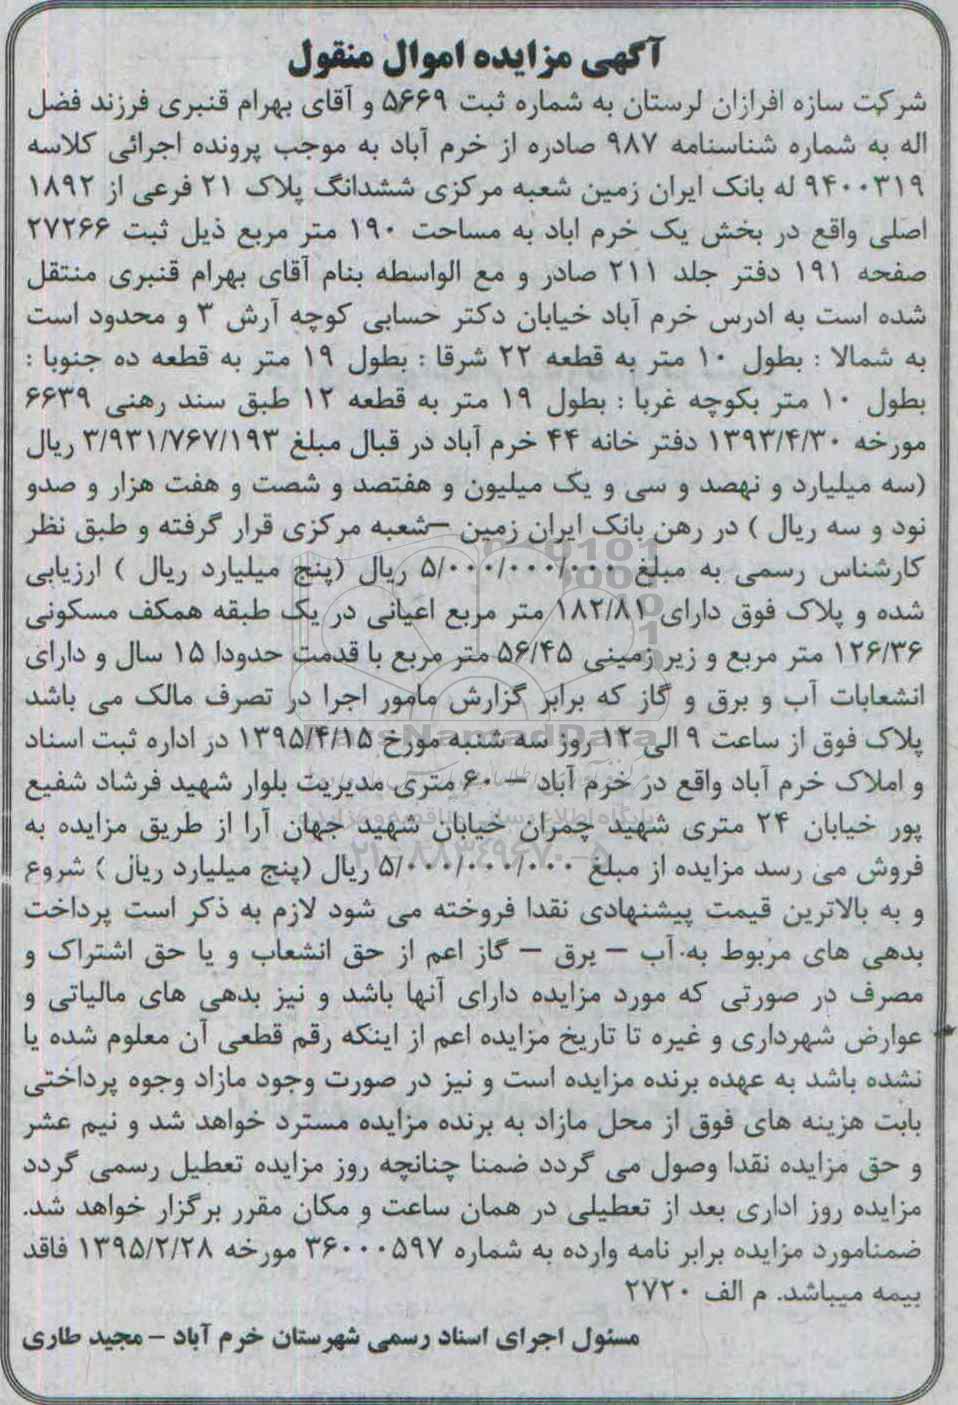 آگهی مزایده اموال منقول
شرکت سازه افرازان لرستان به شماره ثبت ۵۶۶۹ و آقای بهرام قنبری فرزند فضل
اله به شماره شناسنامه ۹۸۷ صادره از خرم آباد به موجب پرونده اجرائی کلاسه
۹۴۰۰۳۱۹ له بانک ایران زمین شعبه مرکزی ششدانگ پلاک ۲۱ فرعی از ۱۸۹۲
اصلی واقع در بخش یک خرم اباد به مساحت ۱۹۰ متر مربع ذیل ثبت ۲۷۲۶۶
صفحه ۱۹۱ دفتر جلد ۲۱۱ صادر و مع الواسطه بنام آقای بهرام قنبری منتقل
شده است به ادرس خرم آباد خیابان دکتر حسابی کوچه آرش ۳ و محدود است
به شمالا : بطول ۱۰ متر به قطعه ۲۲ شرقا : بطول ۱۹ متر به قطعه ده جنوبا :
بطول ۱۰ متر بکوچه غربا : بطول ۱۹ متر به قطعه ۱۲ طبق سند رهنی ۶۶۳۹
مورخه ۱۳۹۳/۴/۳۰ دفتر خانه ۴۴ خرم آباد در قبال مبلغ ۳/۹۳۱/۷۶۷/۱۹۳ ریال
(سه میلیارد و نهصد و سی و یک میلیون و هفتصد و شصت و هفت هزار و صدو
نود و سه ریال ) در رهن بانک ایران زمین –شعبه مرکزی قرار گرفته و طبق نظر
کارشناس رسمی به مبلغ ۵/۰۰۰/۰۰۰/۰۰۰ ریال (پنج میلیارد ریال ) ارزیابی
شده و پلاک فوق دارای ۱۸۲/۸۱ متر مربع اعیانی در یک طبقه همکف مسکونی
۱۲۶/۳۶ متر مربع و زیر زمینی ۵۶/۴۵ متر مربع با قدمت حدودا ۱۵ سال و دارای
انشعابات آب و برق و گاز که برابر گزارش مامور اجرا در تصرف مالک می باشد
پلاک فوق از ساعت ۹ الی ۱۲ روز سه شنبه مورخ ۱۳۹۵/۴/۱۵ در اداره ثبت اسناد
و املاک خرم آباد واقع در خرم آباد – ۶۰ متری مدیریت بلوار شهید فرشاد شفیع
پور خیابان ۲۴ متری شهید چمران خیابان شهید جهان آرا از طریق مزایده به
فروش می رسد مزایده از مبلغ ۵/۰۰۰/۰۰۰/۰۰۰ ریال (پنج میلیارد ریال ) شروع
و به بالاترین قیمت پیشنهادی نقدا فروخته می شود لازم به ذکر است پرداخت
بدهی های مربوط به آب – برق – گاز اعم از حق انشعاب و یا حق اشتراک و
مصرف در صورتی که مورد مزایده دارای آنها باشد و نیز بدهی های مالیاتی و
عوارض شهرداری و غیره تا تاریخ مزایده اعم از اینکه رقم قطعی آن معلوم شده یا
نشده باشد به عهده برنده مزایده است و نیز در صورت وجود مازاد وجوه پرداختی
بابت هزینه های فوق از محل مازاد به برنده مزایده مسترد خواهد شد و نیم عشر
و حق مزایده نقدا وصول می گردد ضمنا چنانچه روز مزایده تعطیل رسمی گردد
مزایده روز اداری بعد از تعطیلی در همان ساعت و مکان مقرر برگزار خواهد شد.
ضمنامورد مزایده برابر نامه وارده به شماره ۳۶۰۰۰۵۹۷ مورخه ۱۳۹۵/۲/۲۸ فاقد
بیمه میباشد. م الف ۲۷۲۰
مسئول اجرای اسناد رسمی شهرستان خرم آباد – مجید طاری